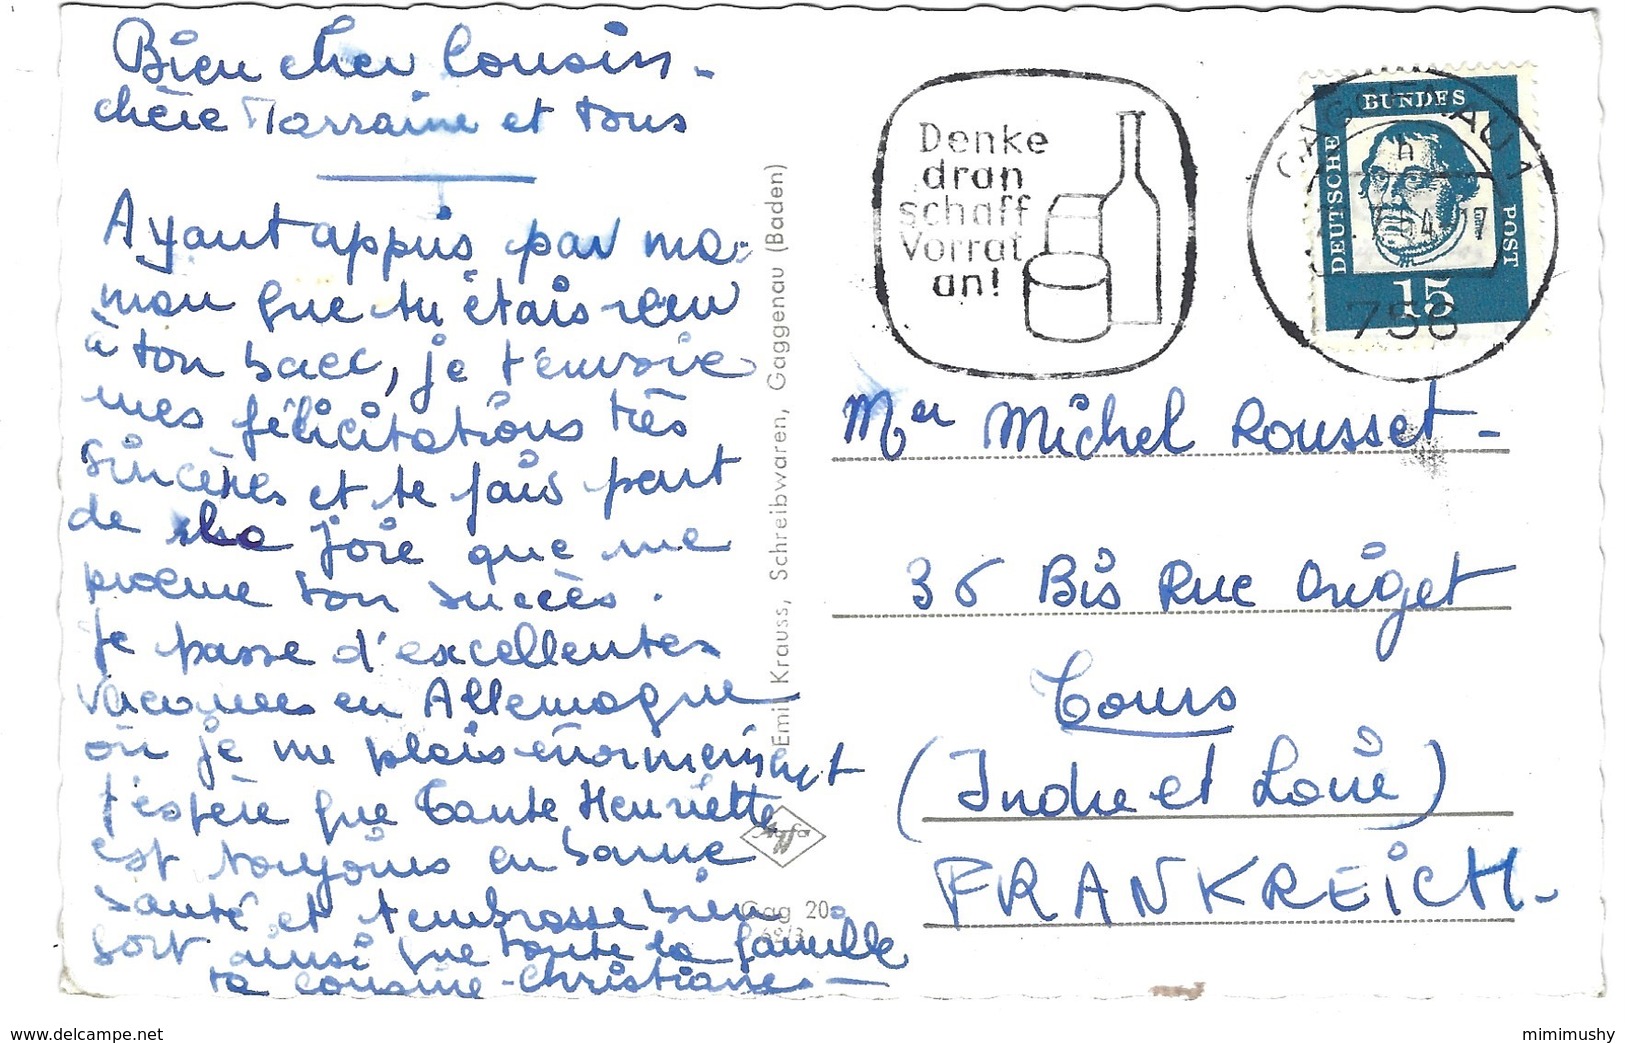 Bien cher Cousin -
chère Marraine et tous
Ayant appris par ma-
man que tu étais reçu
à ton bacc, je t'envoie
mes félicitations très
sincères et te fais part
de la joie que me
procure ton succès.
Je passe d'excellentes
vacances en Allemagne
où je me plais énormément
J'espère que Tante Henriette
est toujours en bonne
santé et t'embrasse bien
fort ainsi que toute la famille
ta cousine - Christiane -
Emil Krauss, Schreibwaren, Gaggenau (Baden)
Agfa
Gag 20
Denke
dran
schaff
Vorrat
an!
DEUTSCHE BUNDES POST
15
GAGGENAU 1
h
7.64.-17
756
Mer Michel Rousset -
36 Bis Rue Origet
Tours
(Indre et Loire)
FRANKREICH -
www.delcampe.net
mimimushy